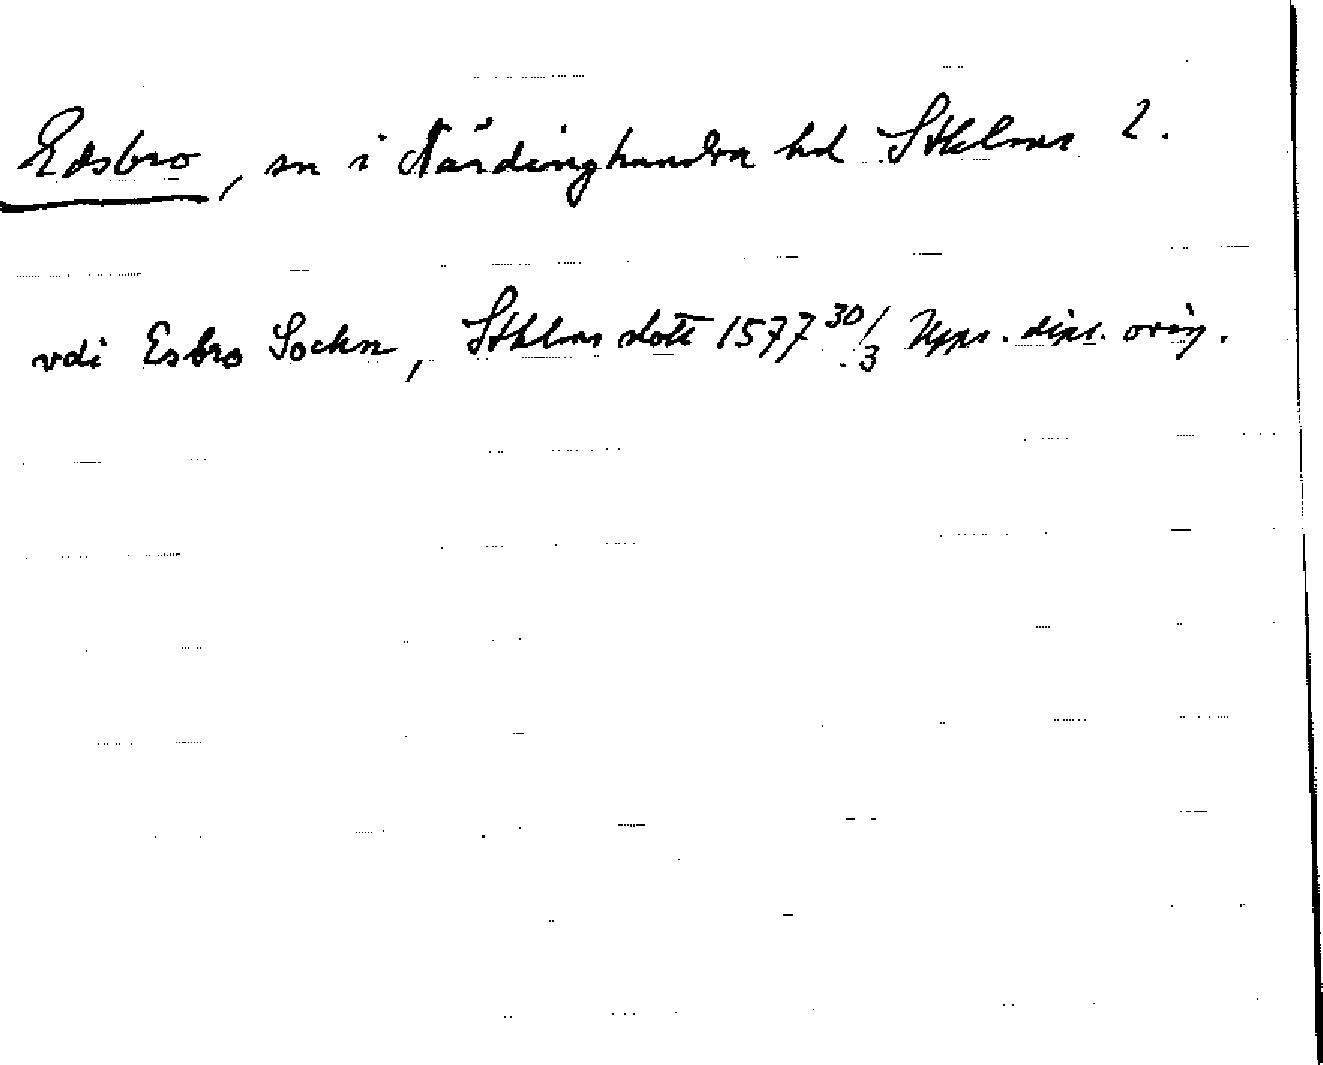 Edsbro, sn i Närdinghundra hd Sthlms l.
vdi Esbro Sockn, Sthlms slott 1577 30/3 Upps. dipl. orig.